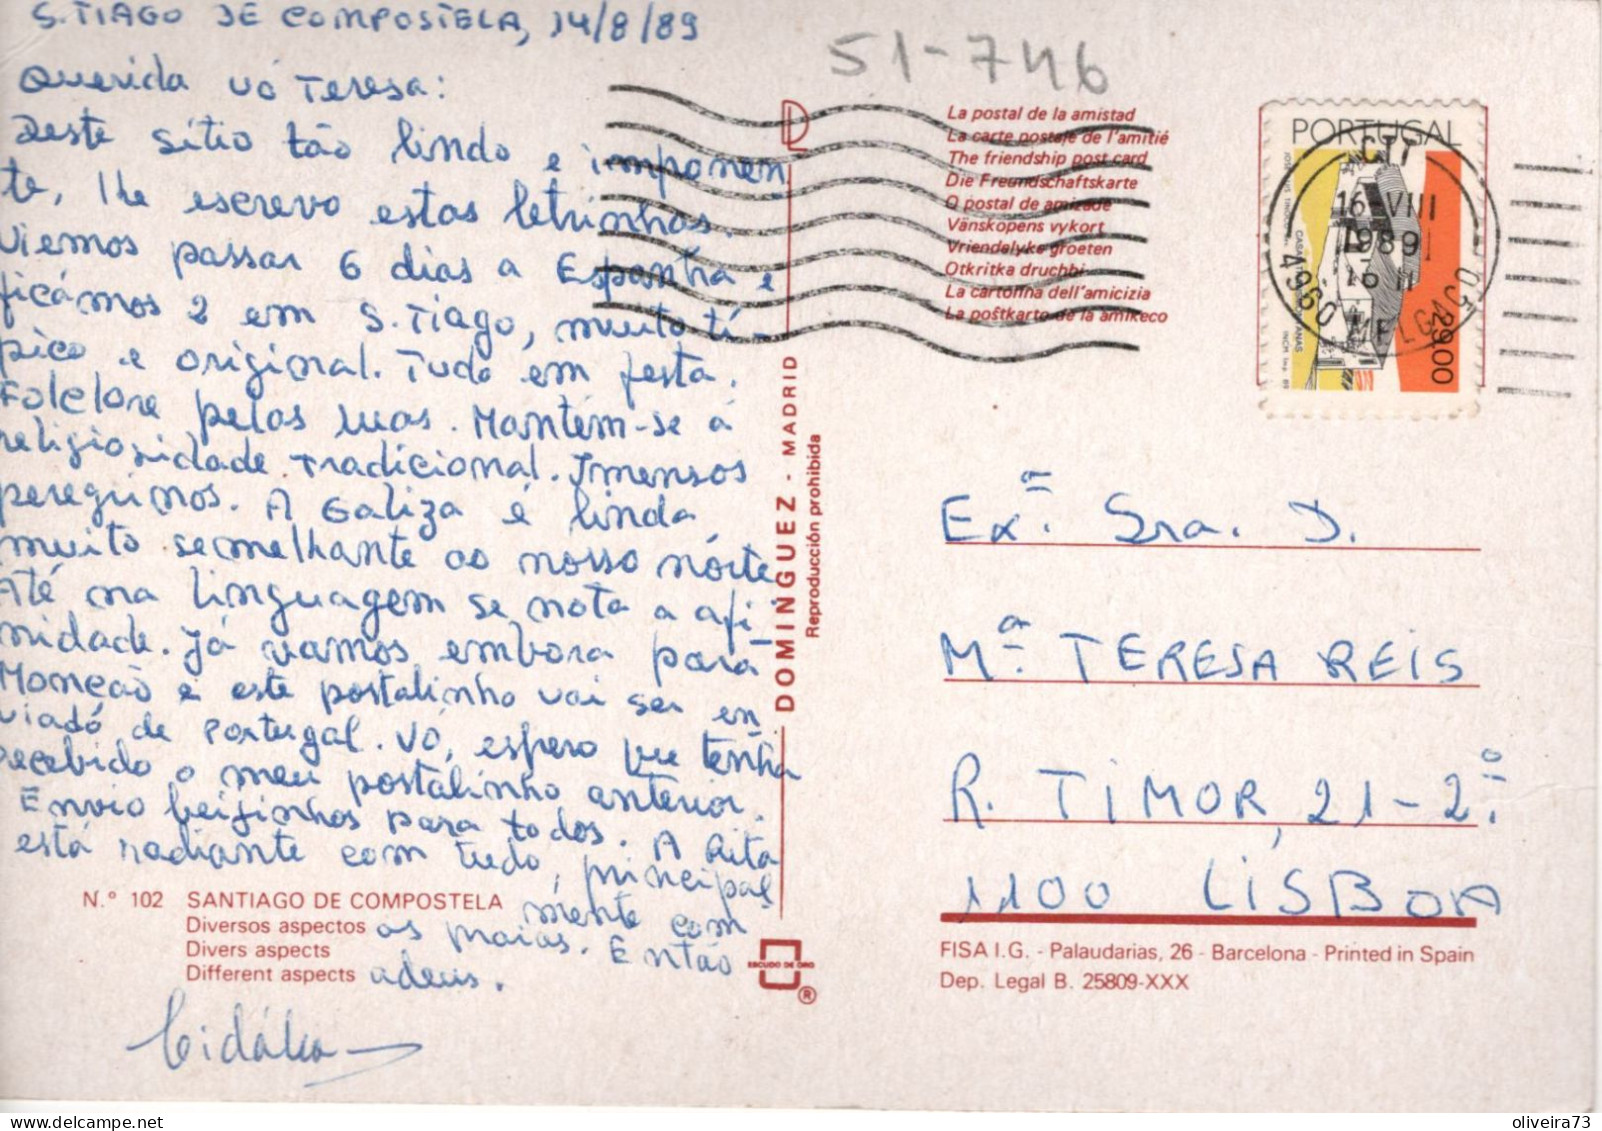 S. TIAGO DE COMPOSTELA, 14/8/89
Querida vó Teresa:
Deste sítio tão lindo e imponen
te, lhe escrevo estas letrinhas.
Viemos passar 6 dias a Espanha e
ficámos 2 em S. Tiago, muito tí-
pico e original. Tudo em festa.
Folclore pelas ruas. Mantém-se a
religiosidade tradicional. Imensos
peregrinos. A Galiza é linda
muito semelhante ao nosso nórte
Até na linguagem se nota a afi-
nidade. Já vamos embora para
Monção e este postalinho vai ser en
viado de Portugal. Vó, espero que tenha
recebido o meu postalinho anterior.
Envio beijinhos para todos. A Rita
está radiante com tudo, principal
mente com
as praias. Então
adeus.
Cidália
N.° 102 SANTIAGO DE COMPOSTELA
Diversos aspectos
Divers aspects
Different aspects
DOMINGUEZ - MADRID
Reproducción prohibida
ESCUDO DE ORO
®
51-746
La postal de la amistad
La carte postale de l'amitié
The friendship post card
Die Freundschaftskarte
O postal de amizade
Vänskopens vykort
Vriendelyke groeten
Otkritka druchbi
La cartolina dell'amicizia
La poŝtkarto de la amikeco
PORTUGAL
29.00
CTT
16 VIII
1989
4960 MELGAÇO
Ex.ª Sra. D.
Mª TERESA REIS
R. TIMOR, 21-2.º
1100 LISBOA
FISA I.G. - Palaudarias, 26 - Barcelona - Printed in Spain
Dep. Legal B. 25809-XXX
oliveira73